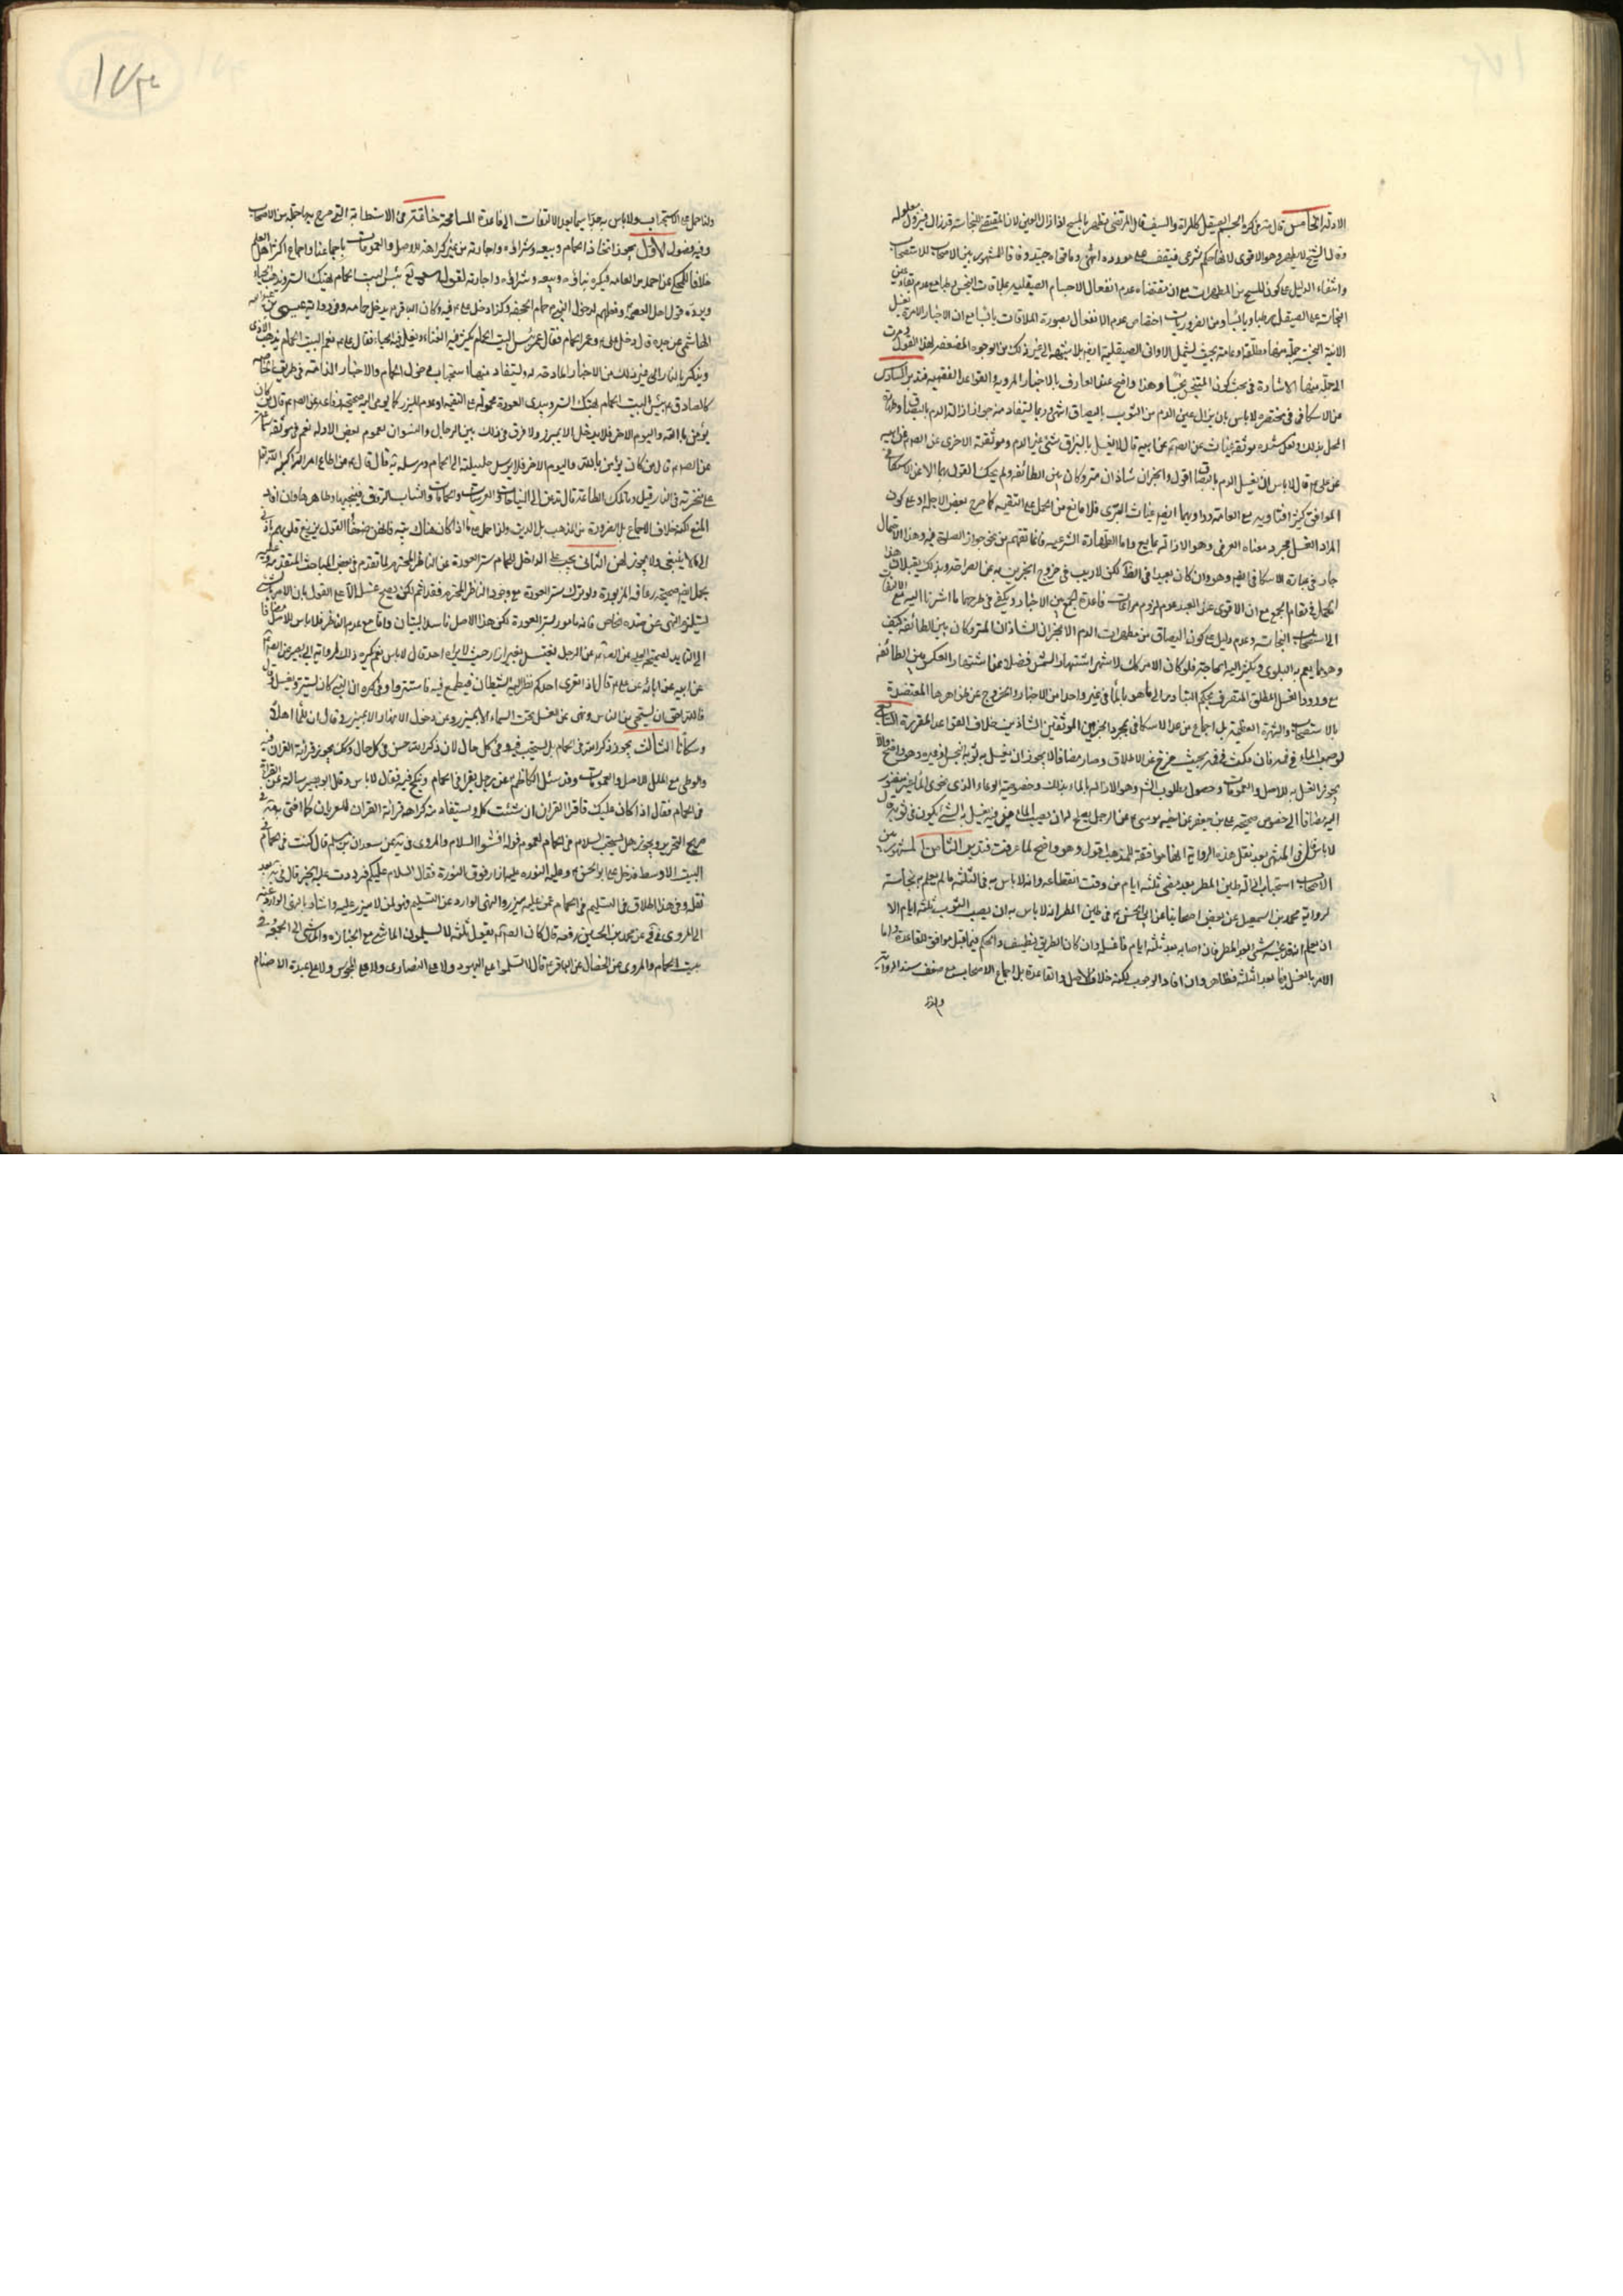 الادلة الخامس قال في كره الجسم الصيقل كالمراة والسيف قال المرتضى يطهر بالمسح اذا زال العين لان المقتضى للنجاسة قد زال فيزول معلوله
وقال الشيخ لا يطهر وهو الاقوى لانها حكم شرعي فيتوقف على مورده انتهى وما قواه جيد وفاقا للمشهور بين الاصحاب للاستصحاب
وانتفاء الدليل على كون المسح من المطهرات مع ان مقتضاه عدم انفعال الاجسام الصيقلية بملاقات النجس
النجاسة على الصيقل اختصاص عدم الانفعال بصورة الملاقات مع ان الاخبار الامرة بغسل
الانية الخ جملة منها مطلقة او عامة بحيث يشمل الاواني الصيقلية الى غير ذلك من الوجوه المعتضدة لهذا القول ومرت
الى جملة منها الاشارة في بحث كون المتنجس نجسا وهذا واضح عند العارف بالاخبار المروية والقواعد الفقهيه فتدبر السادس
عن الاسكافي في مختصره لا باس بان يزال عين الدم من الثوب بالبصاق انتهى وربما يستفاد منه جواز ازالة الدم بالبصاق وطهارة
المحل بذلك ولعل مستنده موثقة غياث عن الصم عن ابيه قال لا يغسل بالبزاق شئ غير الدم وموثقته الاخرى عن الصم عن ابيه
عن علي م قال لا باس ان يغسل الدم بالبصاق اقول والخبران شاذان متروكان بين الطائفه ولم يحك القول بهما الا عن الاسكافي
الموافق كثيرا فتاويه مع العامة وراويهما ايضا غياث البتري فلا مانع من الحمل على التقيه كما صرح بعض الاجلة او على كون
المراد الغسل مجرد معناه العرفي وهو الازالة بمايع واما الطهارة الشرعيه فانما تفهم من نحو جواز الصلوة فيه وهذا الاحتمال
جار في عبارة الاسكافي ايضا وهو وان كان بعيدا في الظ لكن لا ريب في خروج الخبرين به عن الصراحة وبذلك يقبلان هذا
الحمل في مقام الجمع مع ان الاقوى عند العبد عدم لزوم مراعات قاعدة الجمع بين الاخبار ويكفي في طرحهما ما اشرنا اليه مع الالتفات
الى استصحاب النجاسة وعدم دليل على كون البصاق من مطهرات الدم الا الخبران الشاذان المتروكان بين الطائفه كيف
وهو مما يعم به البلوى ويكثر اليه الحاجة فلو كان الامر كك لاشتهر اشتهار الشمس فضلا عما اشتهار العكس بين الطائفه
مع ورود الغسل المطلق المنصرف بحكم التبادر الى ما هو بالماء في غير واحد من الاخبار والخروج عن ظواهرها المعتضدة
بالاستصحاب والشهرة العظيمة بل اجماع من عدا الاسكافي بمجرد الخبرين الموثقين الشاذين خلاف القواعد المقررة السابع
لو صب الماء في فمه فان مكث في فمه بحيث خرج عن الاطلاق وصار مضافا لا يجوز ان يغسل به ثوبه النجس او غيره وهو واضح والا
يجوز الغسل به للاصل والعمومات وحصول مطلوب الشم وهو الازالة بالماء بذلك وخصوصية الوعاء الذي يحوي الماء غير منظور
اليه مضافا الى خصوص صحيحة علي بن جعفر عن اخيه موسى م عن الرجل يصلح له ان يصب الماء من فيه يغسل به الشئ يكون في ثوبه ق
لا باس قال في المنتهى بعد نقل هذه الرواية انها موافقة للمذهب اقول وهو واضح لما عرفت فتدبر الثامن المشهور بين
الاصحاب استحباب ازالة طين المطر بعد مضي ثلثة ايام من وقت انقطاعه وانه لا باس به في الثلثة ما لم يعلم نجاسته
لرواية محمد بن اسمعيل عن بعض اصحابنا عن ابي الحسن م في طين المطر انه لا باس به ان يصيب الثوب ثلثة ايام الا
ان يعلم انه قد نجسه شئ بعد المطر فان اصابه بعد ثلثة ايام فاغسله وان كان الطريق نظيفا والحكم فيما قبل موافق للقاعدة واما
الامر بالغسل فيما بعد الثلثة فظاهره وان افاد الوجوب لكنه خلاف الاصل والقاعدة بل اجماع الاصحاب مع ضعف سند الرواية
ولذا
ولذا حمل على الاستحباب ولا باس به جدا سيما بعد الالتفات الى قاعدة المسامحة خاتمة في الاستطابة التي صرح بها جملة من الاصحاب
وفيه فصول الاول يجوز اتخاذ الحمام وبيعه وشرائه واجارته من غير كراهة للاصل والعمومات باجماعنا واجماع اكثر اهل العلم
خلافا للمحكي عن احمد من العامه فيكره بناؤه وبيعه وشرائه واجارته لقوله بئس البيت الحمام يهتك الستر ويذهب بالحياء
ويرده قول اهل العصمة وفعلهم لدخول النبي م حمام الجحفة وكذا دخل علي م فيه وكان الباقر م يدخل حمامه وفي رواية عيسى بن عبد الله
الهاشمي عن جده قال دخل علي م وعمر الحمام فقال عمر بئس البيت الحمام يكثر فيه العناء ويقل فيه الحياء فقال علي م نعم البيت الحمام يذهب الاذى
ويذكر بالنار الى غير ذلك من الاخبار الصادقة ويستفاد منها استحباب دخول الحمام والاخبار الذامة في طريقنا
كالصادق م بئس البيت الحمام يهتك الستر ويبدي العورة محمولة على التقيه او عدم الميزر كما يومي اليه صحيحة رفاعة عن الصم قال من كان
يؤمن بالله واليوم الاخر فلا يدخل الا بميزر ولا فرق في ذلك بين الرجال والنسوان لعموم بعض الادله نعم في موثقة سماعة
عن الصم قال من كان يؤمن بالله واليوم الاخر فلا يرسل حليلته الى الحمام ومرسلة يه قال قال م من اطاع امراته اكبه الله تعا
على منخريه في النار قيل وما تلك الطاعة قال تدعوه الى النياحات والعرسات والحمامات والثياب الرقاق فيجيبها وظاهرهما وان افاد
المنع لكنه خلاف الاجماع بل الضرورة من المذهب بل الدين ولذا حمل على ما اذا كان هناك ريبة
لا ينبغي ولا يجوز لهن الثاني يجب على الداخل للحمام ستر العورة عن الناظر المحترم لما تقدم في بعض المباحث المتقدمة
ولو ترك ستر العورة مع وجود الناظر المحترم فقد اثم لكن يصح غسله الا على القول بان الامر بالشئ
يستلزم النهي عن ضده الخاص فانه مامور بستر العورة لكن هذا الاصل فاسد واما مع عدم الناظر فلا باس للاصل مضافا
الى التاييد لصحيحة الحلبي عن الصم عن الرجل يغتسل بغير ازار حيث لا يراه احد قال لا باس نعم يكره ذلك لرواية ابي بصير عن الصم
عن ابيه عن ابائه عن علي م قال اذا تعرى احدكم نظر اليه الشيطان فيطمع فيه فاستتروا
فالله احق ان يستحيى من الناس ونهى عن الغسل تحت السماء الا بميزر وعن دخول الانهار الا بميزر وقال ان للماء اهلا
وسكانا الثالث يجوز ذكر الله في الحمام بل يستحب فيه وفي كل حال لان ذكر الله حسن في كل حال وكك يجوز قرائة القران فيه
والوطي مع الحليلة للاصل والعمومات وقد سئل الكاظم م عن رجل يقرا في الحمام وينكح فيه فقال لا باس وقد سئل ابو بصير عن القرائة
في الحمام فقال اذا كان عليك ازار فاقرا القران ان شئت كله ويستفاد منه كراهة قرائة القران للعريان كما افتى به في
صريح التحرير ويجوز بل يستحب السلام في الحمام لعموم قوله افشوا السلام والمروي في يه عن سعدان بن مسلم قال كنت في الحمام في
البيت الاوسط فدخل علي ابو الحسن م وعليه النورة وعليه ازار فوق النورة فقال السلام عليكم فرددت عليه الخبر قال في يه بعد
نقله وفي هذا اطلاق في التسليم في الحمام لمن عليه ميزر والنهي الوارد عن التسليم فيه هو لمن لا ميزر عليه واشار بالنهي الوارد عنه
الى المروي في في عن محمد بن الحسين رفعه قال كان الصم يقول ثلثة لا يسلمون الماشي مع الجنازة والماشي الى الجمعة وفي
بيت الحمام والمروي عن الخصال عن الباقر م قال لا تسلموا على اليهود ولا على النصارى ولا على المجوس ولا على عبدة الاصنام